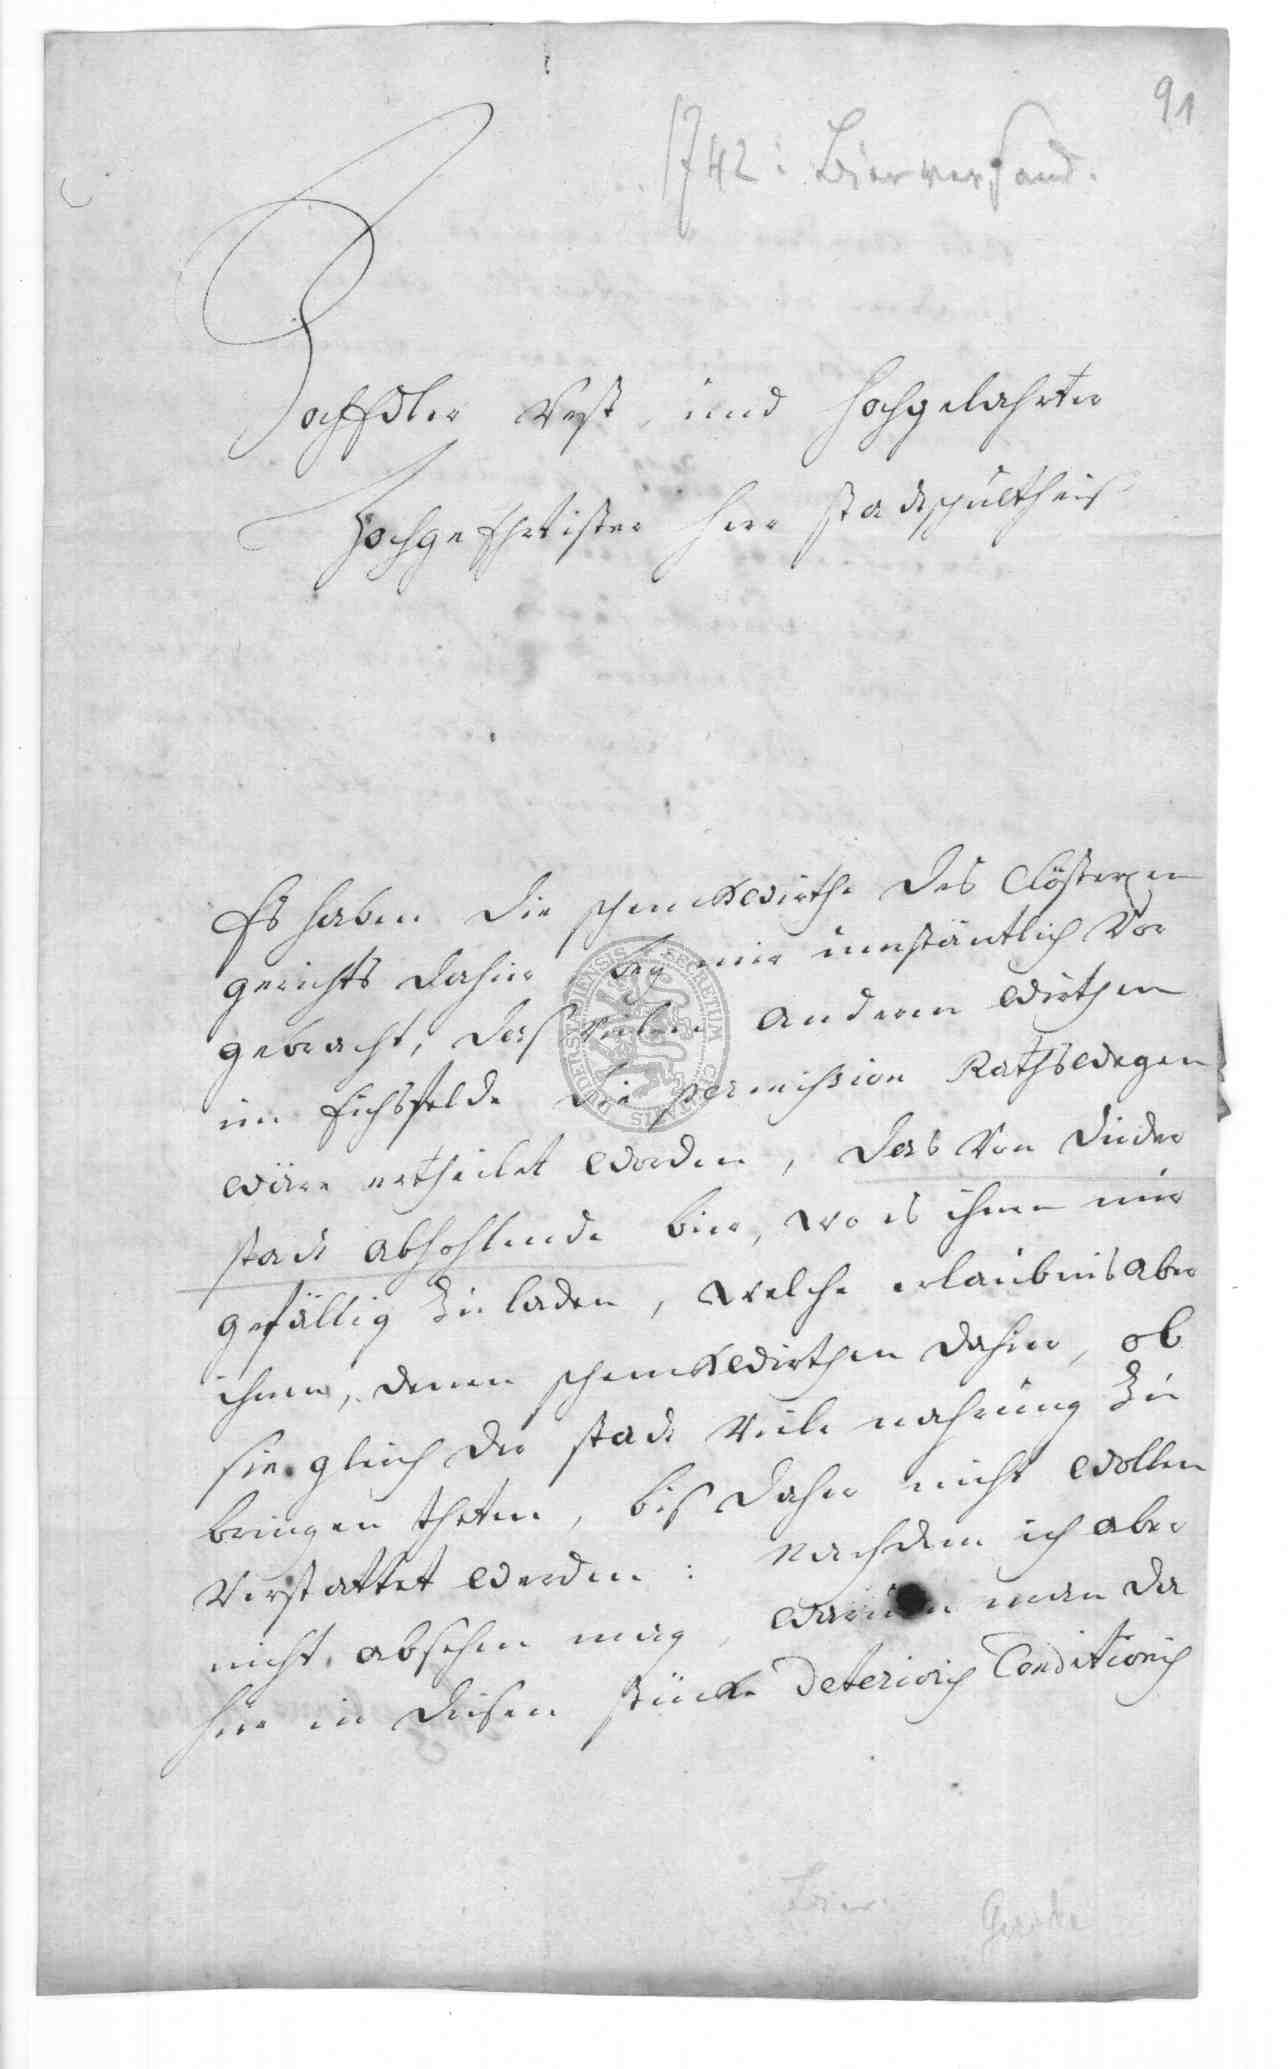 91
1742: Bierversand.
HochEdler Vest, und Hochgelahrter
HochgeEhrtister Herr stadschultheis
Es haben die schenckwirthe des Clösterlen
gerichts dahier bey mir umständtlich Vor
gebracht, das Vielen anderen wirthen
im Eichsfelde die permission Rathswegen
wäre ertheilet worden, das Von Duder
stadt abhohlende bier, wo es ihnen nur
gefällig zu laden, welche erlaubnis aber
ihnen, denen schenckwirthen dahier, ob
sie gleich der stadt Viele nahrung zu
bringen theten, bis daher nicht wollen
Verstattet werden: Nachdem ich aber
nicht absehen mag, warum man da
hier in diesem stücke Deterioris Conditionis
Bier
Gerode
SECRETUM CIVITATIS DUDERSTADIENSIS